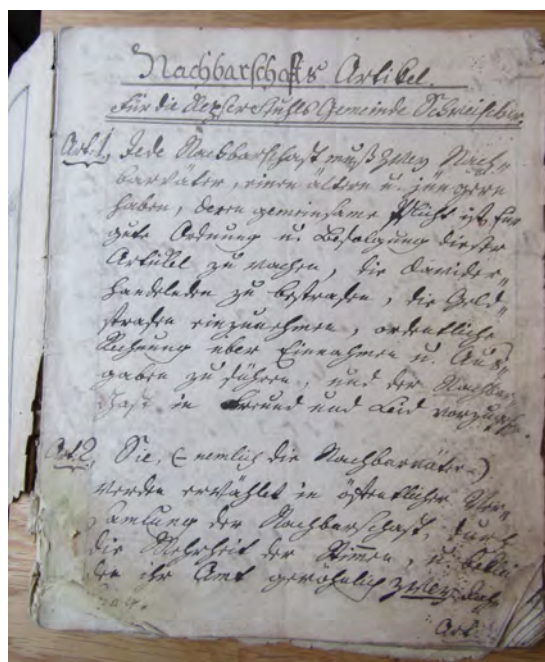 Nachbarschafts Artikel.
Für die Repser Stuhls Gemeinde
Art. 1, Jede Nachbarschaft muß zwey Nach„
barväter, einen ältern u. jüngern
haben, deren gemeinsame Pflicht ist für
gute Ordnung u. Befolgung dieser
Artikel zu wachen, die dawider
handelnden zu bestrafen, die Geld„
strafen einzunehmen, ordentliche
Rechnung über Einnahmen u. Aus„
gaben zu führen, und der Nachbar
schaft in Freud und Leid
Art 2, Sie, (nemlich die Nachbarväter)
werden erwählet in öffentlicher Ver„
samlung der Nachbarschaft, durch
die Mehrheit der Stimmen, u.
ihr Amt gewöhnlich zwey
Art.